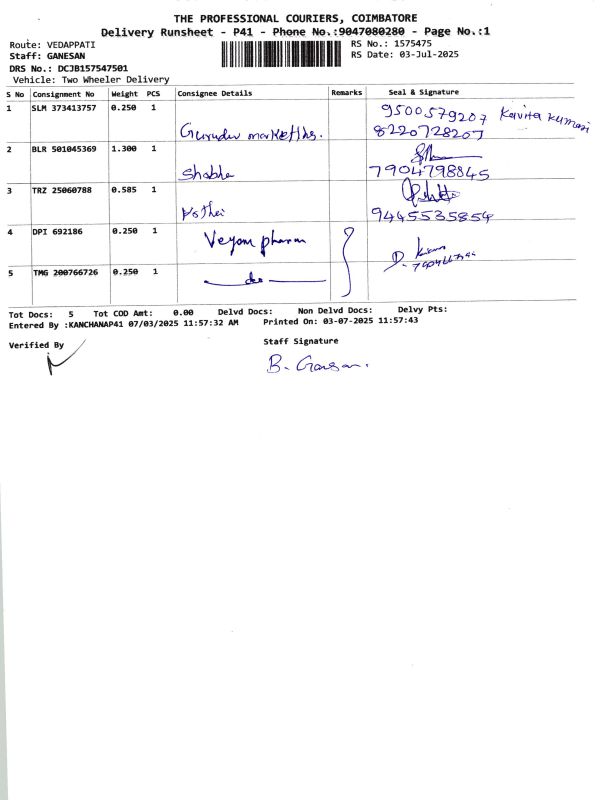 THE PROFESSIONAL COURIERS, COIMBATORE
Delivery Runsheet - P41 - Phone No.:9047080280 - Page No.:1
Route: VEDAPPATI RS No.: 1575475
Staff: GANESAN RS Date: 03-Jul-2025
DRS No.: DCJB157547501
Vehicle: Two Wheeler Delivery
S No Consignment No Weight PCS Consignee Details Remarks Seal & Signature
1 SLM 373413757 0.250 1 9500579207 Kavita Kumari
marketing. 8220728207
2 BLR 501045369 1.300 1
Shobha 7904798845
3 TRZ 25060788 0.585 1
Kothai 9445535854
4 DPI 692186 0.250 1 Veyom pharm D.
5 TMG 200766726 0.250 1 do
Tot Docs: 5 Tot COD Amt: 0.00 Delvd Docs: Non Delvd Docs: Delvy Pts:
Entered By :KANCHANAP41 07/03/2025 11:57:32 AM Printed On: 03-07-2025 11:57:43
Verified By Staff Signature
B.